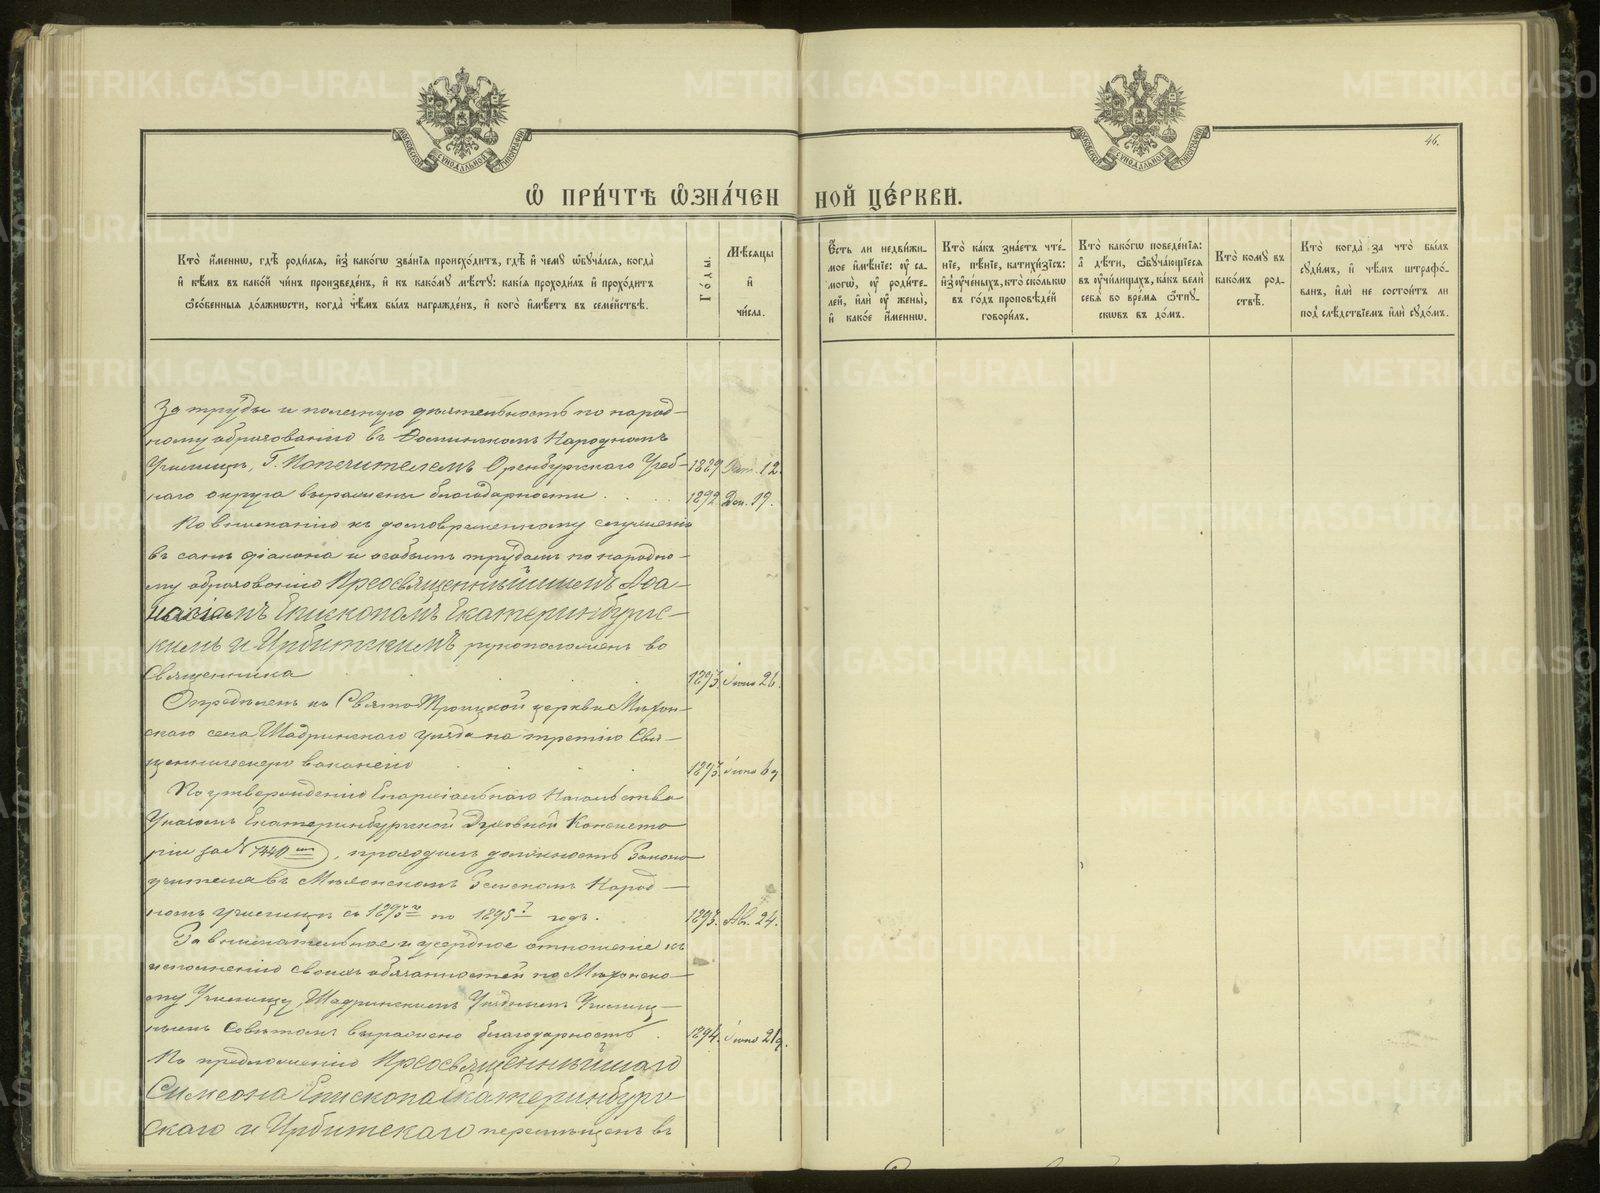 46.
Ѡ ПРИ́ЧТѢ Ѡ҆ЗНА́ЧЕННОЙ ЦЕ́РКВИ.
Кто̀ и҆́менно, гдѣ̀ роди́лся, и҆з̾ како́гѡ зва́нїѧ происхо́дитъ, гдѣ̀ и҆ чемꙋ̀ ѡ҆бꙋча́лся, когда̀
и҆ кѣ́мъ въ како́й чи́нъ произведе́нъ, и҆ къ како́мꙋ мѣ́стꙋ: какі̑ѧ проходи́лъ и҆ прохо́дитъ
ѻ҆со́бенныѧ до́лжности, когда̀ чѣ́мъ бы́лъ награжде́нъ, и҆ кого̀ и҆мѣ́етъ въ семе́йствѣ.
Го́ды.
Мѣ́сяцы
и҆
чи́сла.
Є҆́сть ли недви́жи-
мое и҆мѣ́нїе: ᲂу҆ са-
могѡ̀, ᲂу҆ роди́те-
лей, и҆лѝ ᲂу҆ жены̀,
и҆ како́е и҆́менно.
Кто̀ ка́къ зна́етъ чте́-
нїе, пѣ́нїе, катихи́зїсъ:
и҆з̾ ᲂу҆че́ныхъ, кто̀ ско́лькѡ
въ го́дъ проповѣ́дей
говори́лъ.
Кто̀ како́гѡ поведе́нїѧ:
а҆ дѣ́ти, ѡ҆бꙋча́ющїесѧ
въ ᲂу҆чи́лищахъ, ка́къ велѝ
себѧ̀ во вре́мѧ ѿпꙋ-
скѡвъ въ до́мъ.
Кто̀ комꙋ̀ въ
како́мъ род-
ствѣ̀.
Кто̀ когда̀ за что̀ бы́лъ
сꙋди́мъ, и҆ чѣ́мъ штрафо́-
ванъ, и҆лѝ не состои́тъ ли
под̾ слѣ́дствїемъ и҆лѝ сꙋдо́мъ.
За труды и полезную дѣятельность по народ-
ному образованію въ Народномъ
Училищѣ, Г. Попечителемъ Оренбургскаго Учеб- 1889 12.
наго округа выражены благодарности . . . 1892 Дек. 19.
По вниманію къ долговременному служенію
въ санѣ діакона и особымъ трудамъ по народно-
му образованію Преосвященнѣйшимъ Аѳа-
насіемъ Епископомъ Екатеринбургс-
кимъ и Ирбитскимъ рукоположенъ во
Священника . . . 1893. Іюня 26.
Опредѣленъ къ Свято Троицкой церкви Мехон-
скаго села Шадринскаго уѣзда на третію Свя-
щенническую вакансію . . . 1893. Іюня
По утвержденію Епархіальнаго Начальства
Указомъ Екатеринбургской Духовной Консисто
ріи за № , проходилъ должность Законо
учителя въ Мехонскомъ Земскомъ Народ-
номъ училищѣ съ 1893 по 1895 годъ. 1893. Ав. 24.
За внимательное и усердное отношеніе къ
исполненію своихъ обязанностей по Мехонско-
му Училищу, Шадринскимъ Уѣзднымъ Училищ-
нымъ Совѣтомъ выражено благодарность . 1894. Іюня
По предложенію Преосвященнѣйшаго
Симеона Епископа Екатеринбург-
скаго и Ирбитскаго перемѣщенъ въ